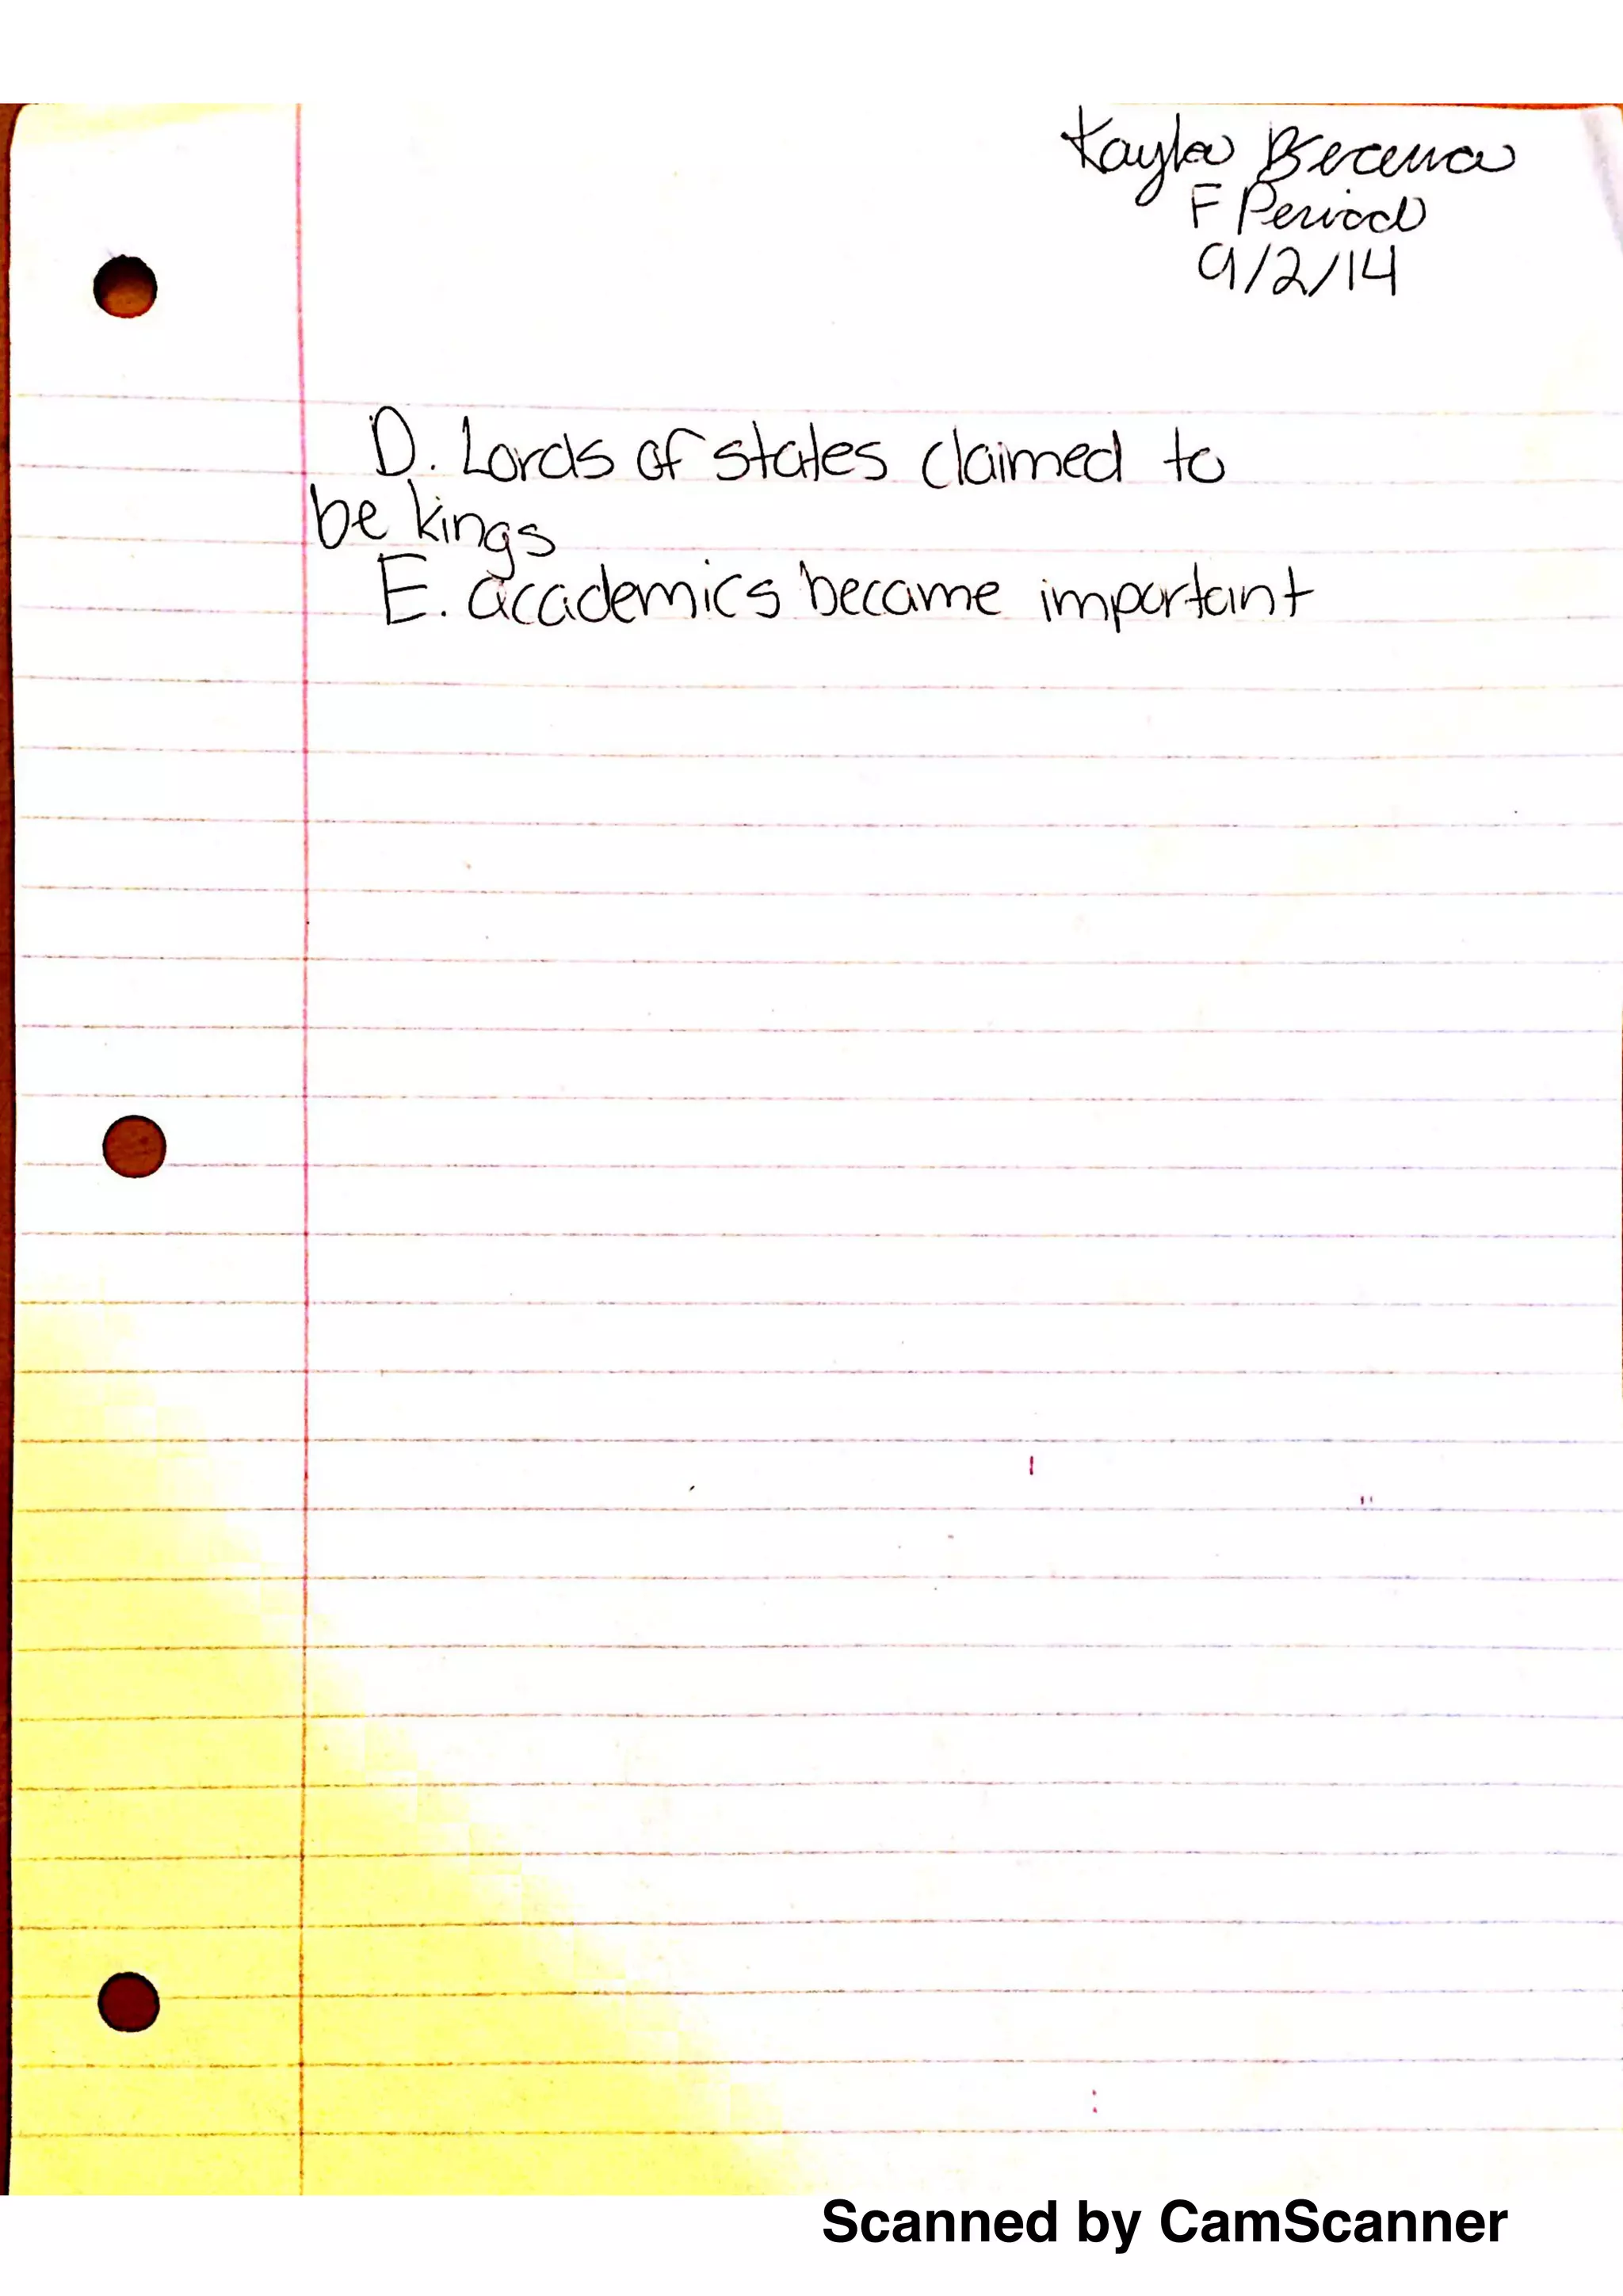 Kayla Becerra
F Period
9/2/14
D. Lords of states claimed to
be kings
E. academics became important
Scanned by CamScanner